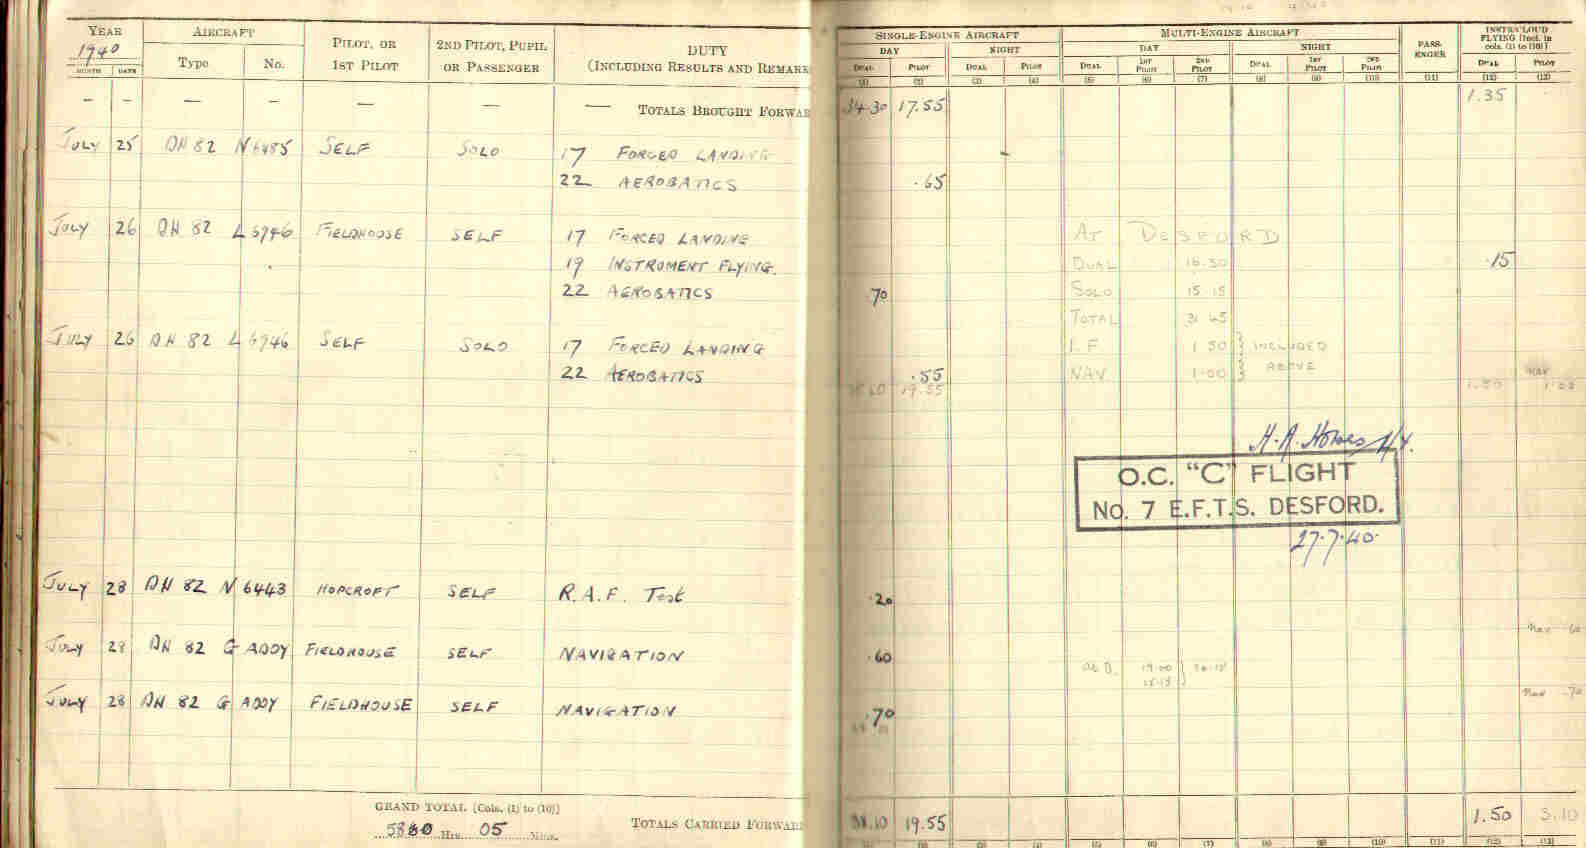 YEAR AIRCRAFT PILOT, OR 2ND PILOT, PUPIL DUTY SINGLE-ENGINE AIRCRAFT MULTI-ENGINE AIRCRAFT PASS-ENGER
1940 Type No. 1ST PILOT OR PASSENGER (INCLUDING RESULTS AND REMARK DAY NIGHT DAY NIGHT FLYING [Incl. in cols. (1) to (10)]
MONTH DATE DUAL PILOT DUAL PILOT DUAL 1ST PILOT 2ND PILOT DUAL 1ST PILOT 2ND PILOT DUAL PILOT
(1) (2) (3) (4) (5) (6) (7) (8) (9) (10) (11) (12) (13)
— — — — — — — TOTALS BROUGHT FORWAR 34.30 17.55 1.35
JULY 25 DH 82 N 6485 SELF SOLO 17 FORCED LANDING
22 AEROBATICS .65
JULY 26 DH 82 L 6946 FIELDHOUSE SELF 17 FORCED LANDING AT DESFORD
19 INSTROMENT FLYING. DUAL 16.30 .15
22 AEROBATICS .70 SOLO 15 15
TOTAL 31 45
JULY 26 DH 82 L 6946 SELF SOLO 17 FORCED LANDING I.F 1 50 INCLUDED
22 AEROBATICS .55 NAV 1.00 ABOVE NAV
19.55 1.50 1.00
H.A. Howes
O.C. "C" FLIGHT
No. 7 E.F.T.S. DESFORD.
27.7.40.
JULY 28 DH 82 N 6443 HOPCROFT SELF R.A.F. Test .20
JULY 28 DH 82 G ADDY FIELDHOUSE SELF NAVIGATION .60 Nav .60
JULY 28 DH 82 G ADDY FIELDHOUSE SELF NAVIGATION .70 Nav .70
GRAND TOTAL [Cols. (1) to (10)]
Hrs. 05 Mins. TOTALS CARRIED FORWAR 38.10 19.55 1.50 3.10
(3) (4) (5) (6) (7) (8) (9) (10) (11) (12) (13)